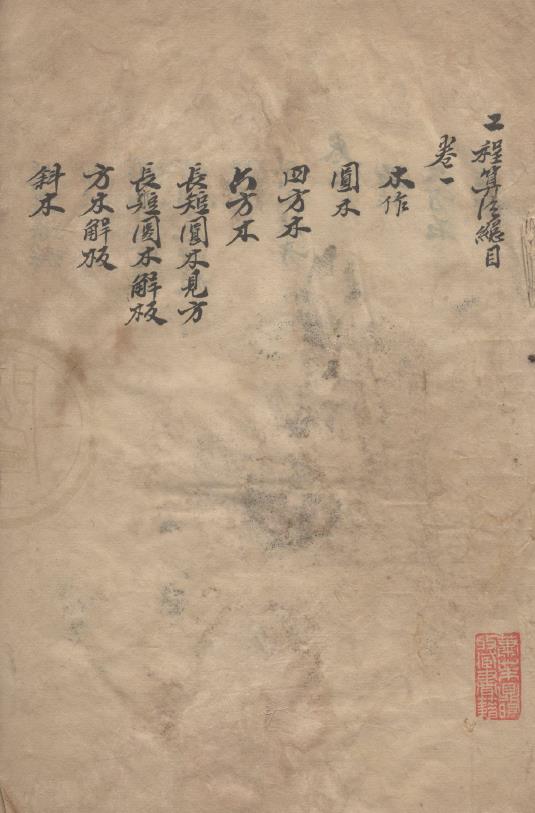 工程算法總目
卷一
木作
圓木
四方木
六方木
長短圓木見方
長短圓木解板
方木解板
斜木